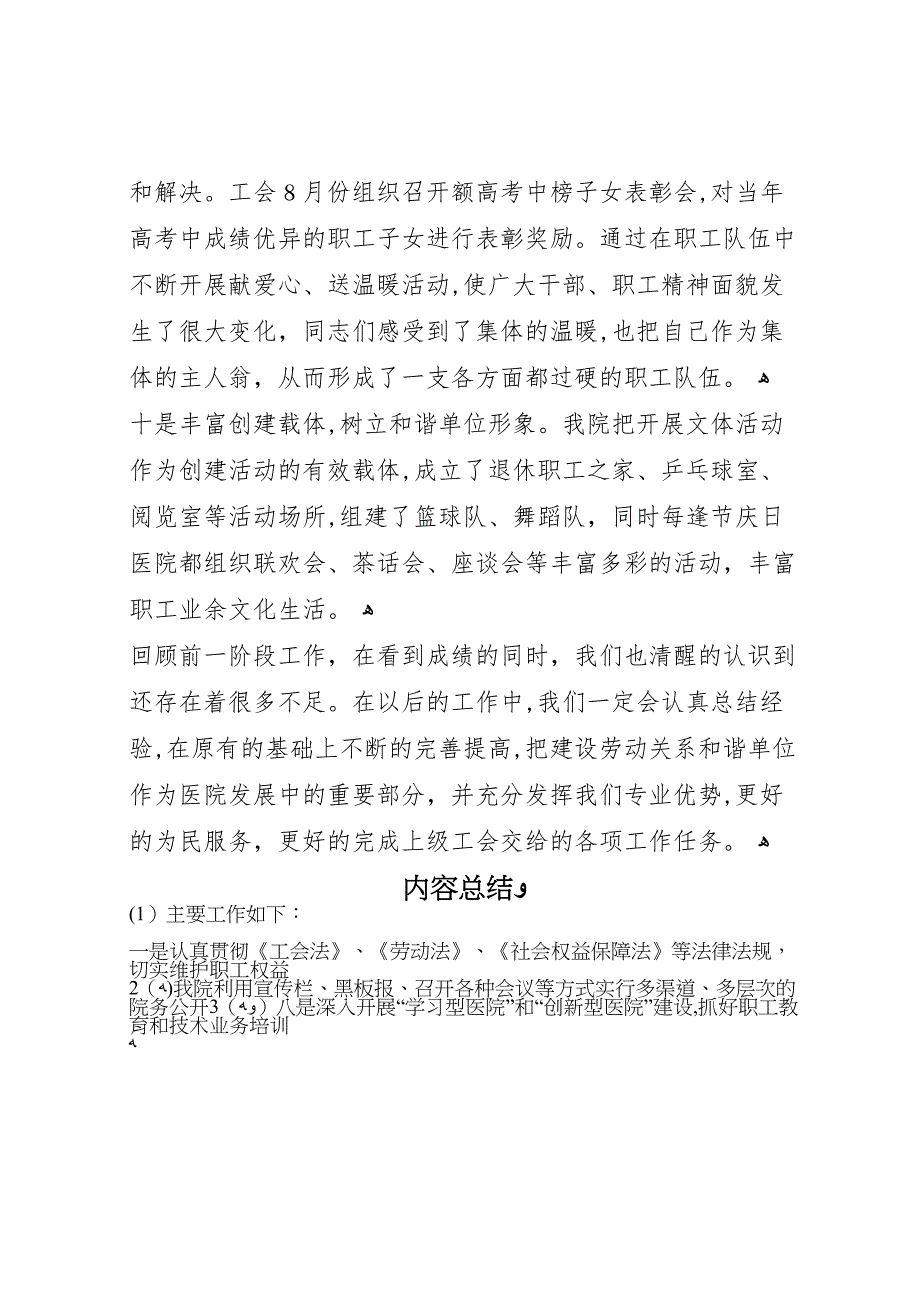 和解决。工会 8 月份组织召开额高考中榜子女表彰会,对当年
高考中成绩优异的职工子女进行表彰奖励。通过在职工队伍中
不断开展献爱心、送温暖活动,使广大干部、职工精神面貌发
生了很大变化，同志们感受到了集体的温暖,也把自己作为集
体的主人翁，从而形成了一支各方面都过硬的职工队伍。 ﻫ
十是丰富创建载体,树立和谐单位形象。我院把开展文体活动
作为创建活动的有效载体,成立了退休职工之家、乒乓球室、
阅览室等活动场所,组建了篮球队、舞蹈队，同时每逢节庆日
医院都组织联欢会、茶话会、座谈会等丰富多彩的活动，丰富
职工业余文化生活。 ﻫ
回顾前一阶段工作，在看到成绩的同时，我们也清醒的认识到
还存在着很多不足。在以后的工作中,我们一定会认真总结经
验,在原有的基础上不断的完善提高,把建设劳动关系和谐单位
作为医院发展中的重要部分，并充分发挥我们专业优势,更好
的为民服务，更好的完成上级工会交给的各项工作任务。 ﻫ
内容总结ﻭ
(1）主要工作如下：
一是认真贯彻《工会法》、《劳动法》、《社会权益保障法》等法律法规，
切实维护职工权益
2（ﻪ)我院利用宣传栏、黑板报、召开各种会议等方式实行多渠道、多层次的
院务公开3（ﻭﻪ）八是深入开展“学习型医院”和“创新型医院”建设,抓好职工教
育和技术业务培训
ﻪ